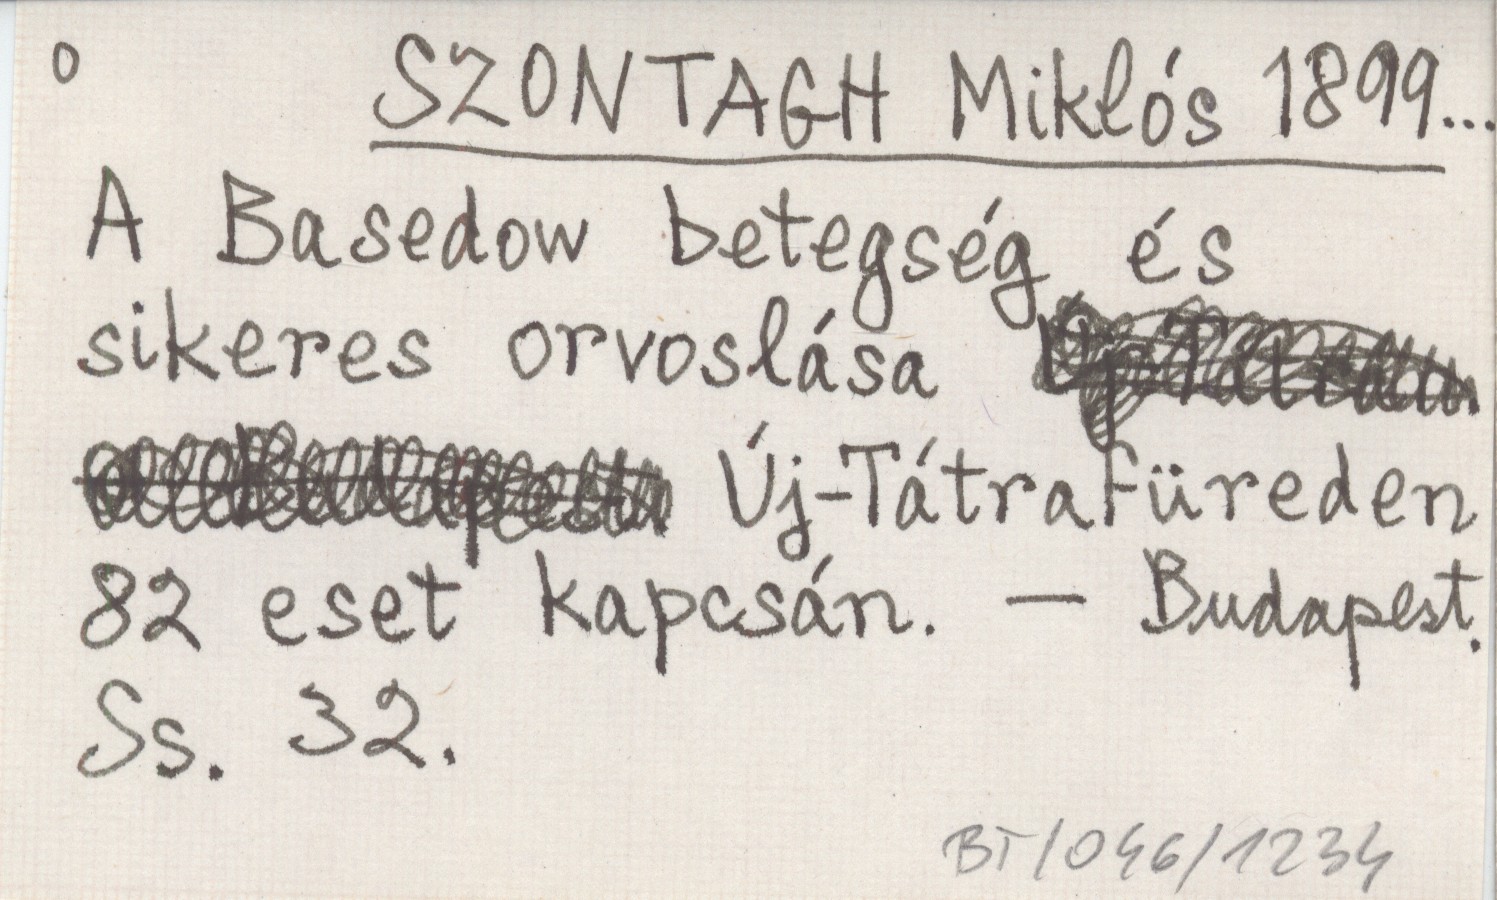 o SZONTAGH Miklós 1899...
A Basedow betegség és
sikeres orvoslása
Új-Tátrafüreden
82 eset kapcsán. — Budapest.
Ss. 32.
BT/046/1234